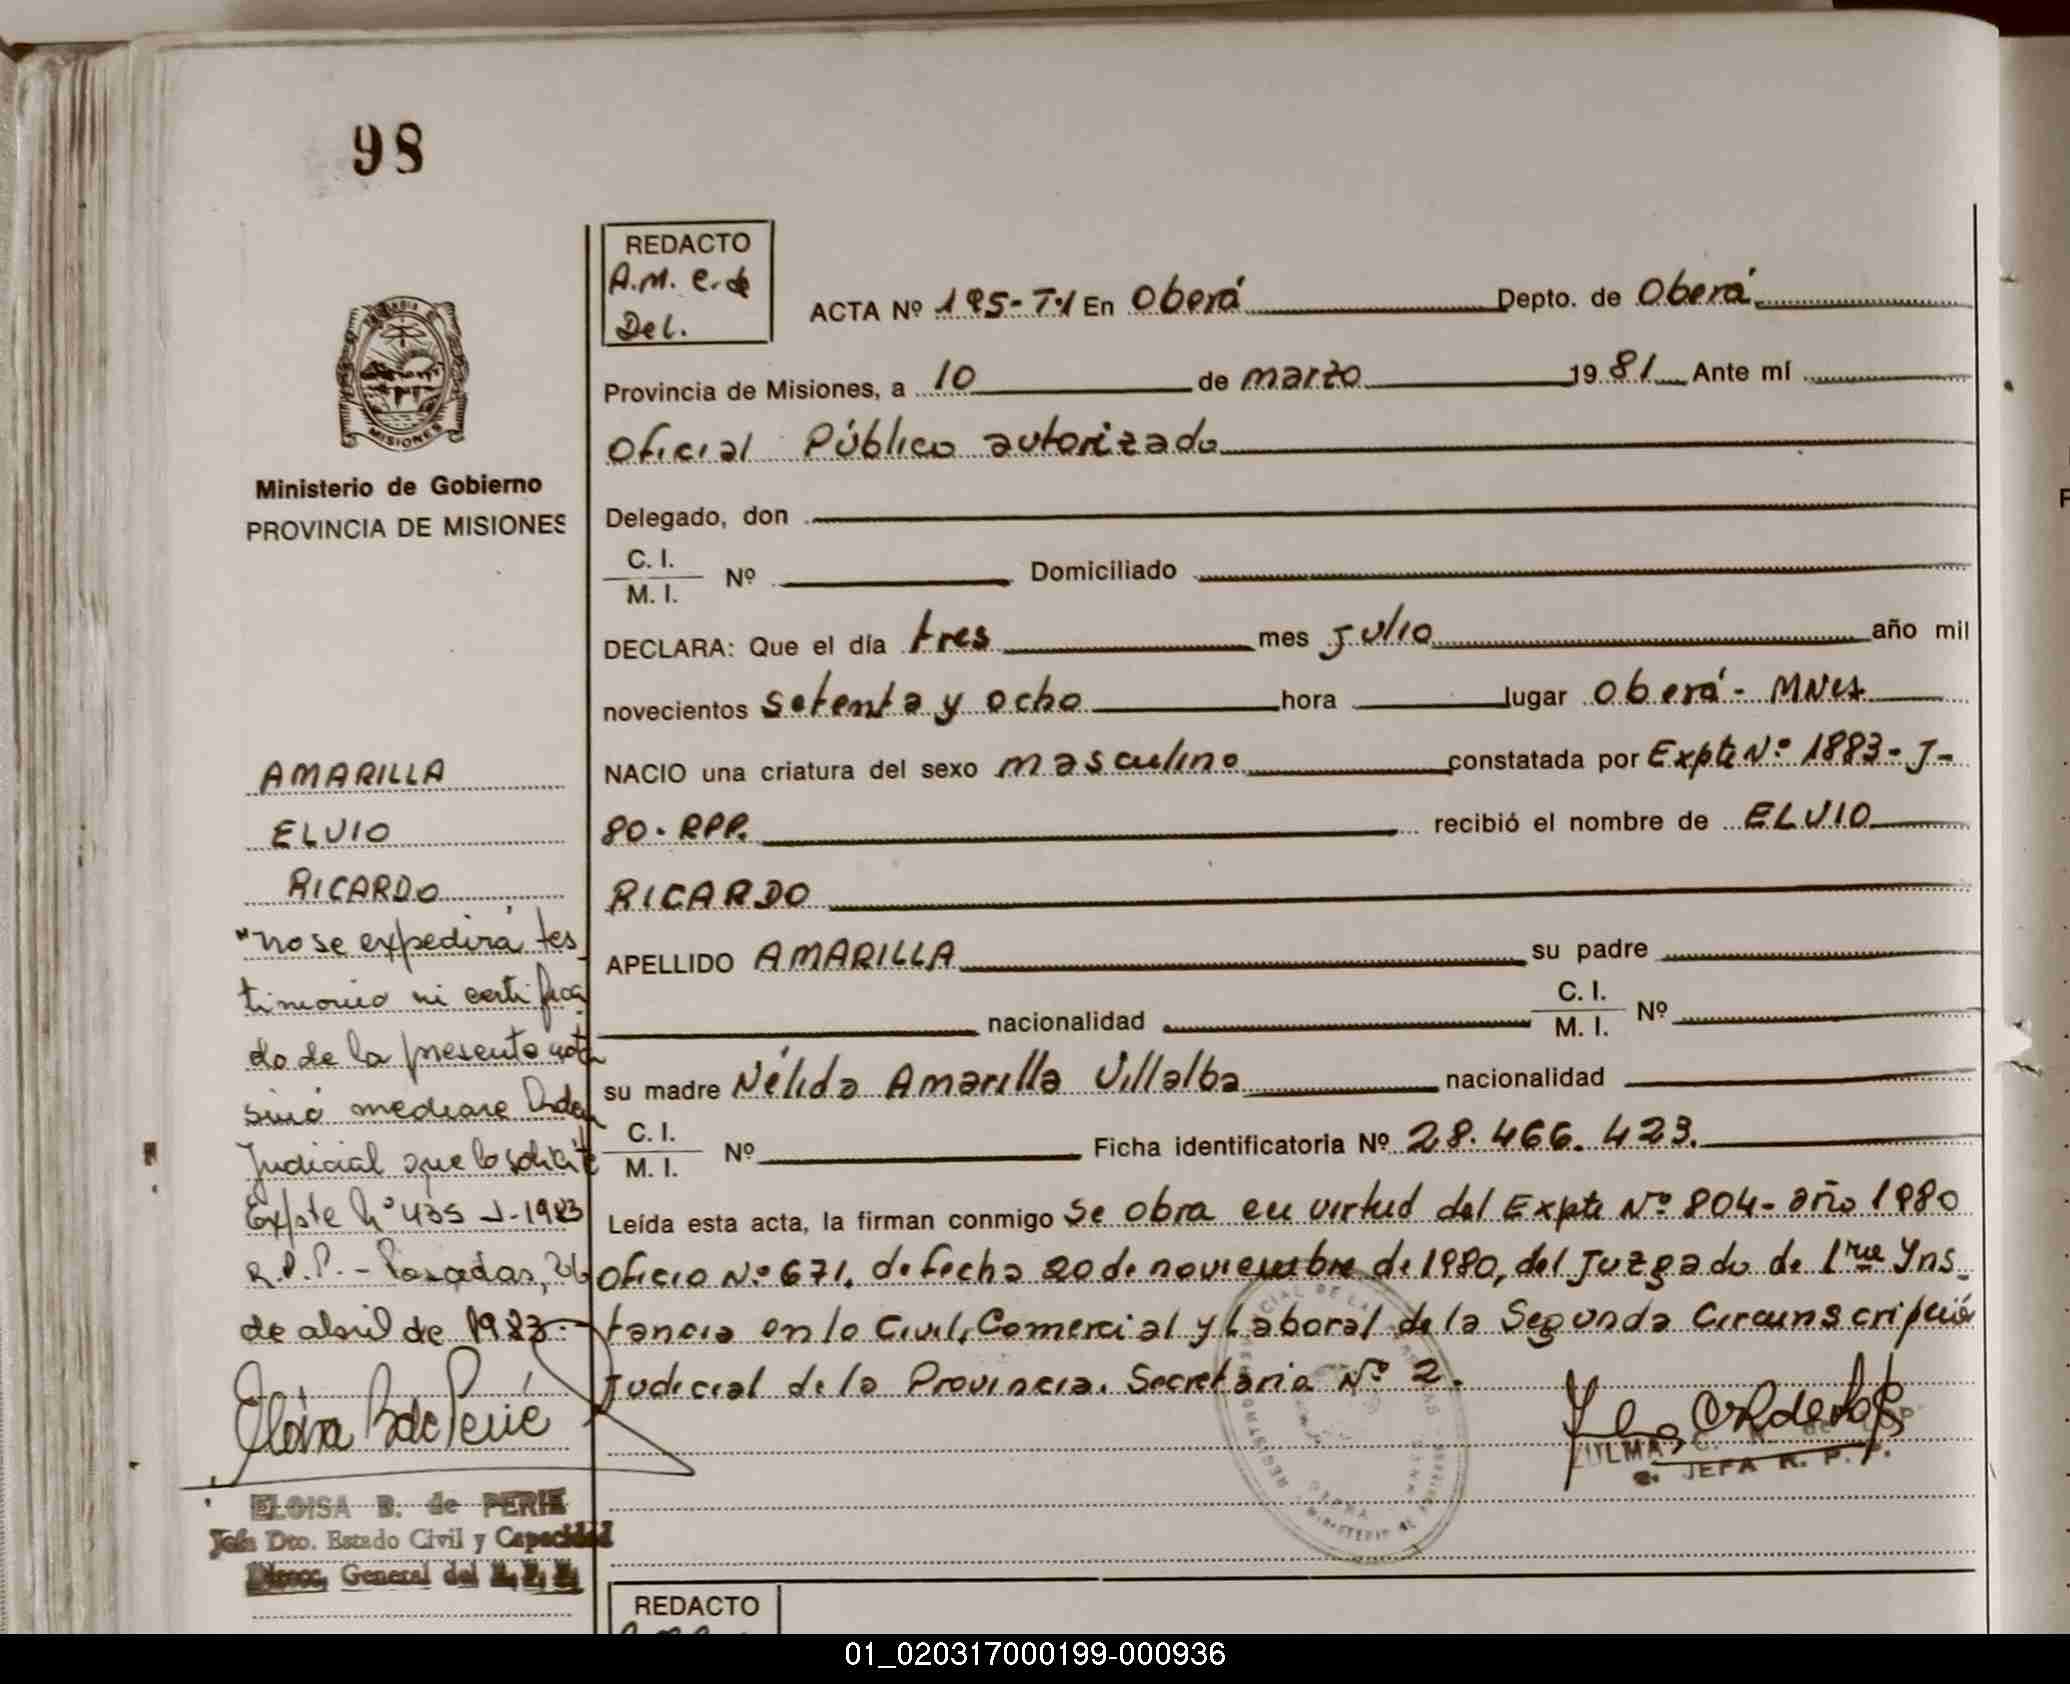 98
REDACTO
A.M. C. de
Del.
ACTA Nº 195-T1 En Oberá Depto. de Oberá
Provincia de Misiones, a 10 de marzo 1981 Ante mí
Oficial Público autorizado
MISIONES
Ministerio de Gobierno
PROVINCIA DE MISIONES
Delegado, don
C. I.
M. I. Nº Domiciliado
DECLARA: Que el día tres mes julio año mil
novecientos setenta y ocho hora lugar Oberá - MNes
AMARILLA
ELVIO
RICARDO
NACIO una criatura del sexo masculino constatada por Expte Nº 1883-J-
80-RPP. recibió el nombre de ELVIO
RICARDO
APELLIDO AMARILLA su padre
nacionalidad C. I.
M. I. Nº
su madre Nélida Amarilla Villalba nacionalidad
C. I.
M. I. Nº Ficha identificatoria Nº 28.466.423.
Leída esta acta, la firman conmigo se obra en virtud del Expte Nº 804- año 1980
Oficio Nº 671, de fecha 20 de noviembre de 1980, del Juzgado de 1ra Yns-
tancia en lo Civil, Comercial y Laboral de la Segunda Circunscripción
Judicial de la Provincia. Secretaria Nº 2.
"no se expedirá tes
timonio ni certifica
do de la presente
sinó mediare Orden
Judicial que lo solicite
Expte Nº 435 J-1983
R.P.P. - Posadas, 26
de abril de 1983.
Eloisa B de Perié
ELOISA B. de PERIE
Jefa Dto. Estado Civil y Capacidad
Direcc. General del R. P. P.
ZULMA C.
JEFA R. P. P.
REDACTO
01_020317000199-000936